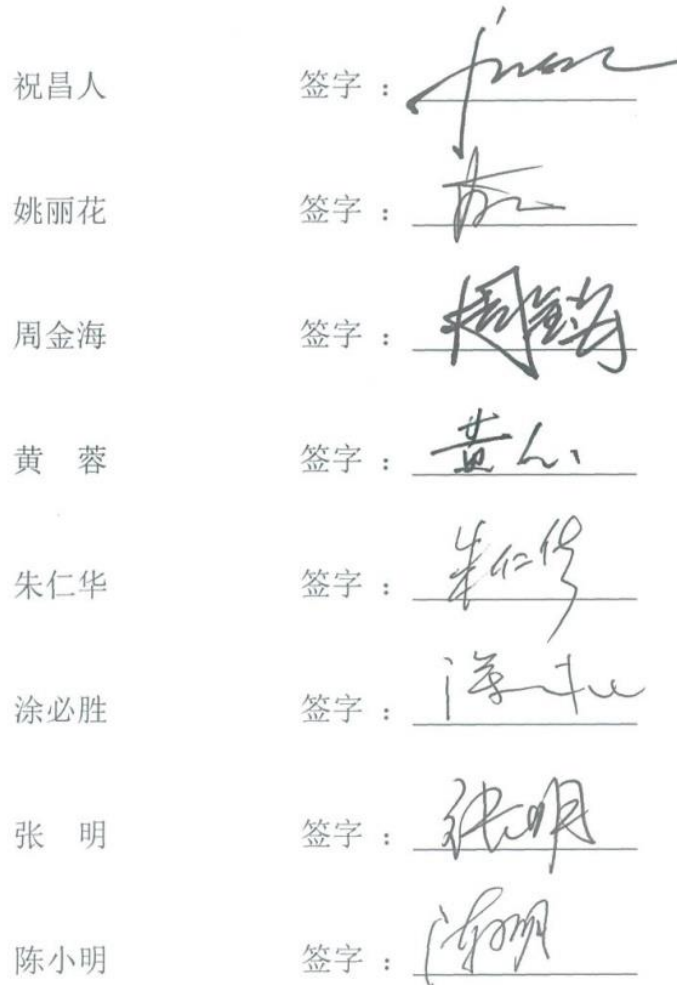 祝昌人 签字：
姚丽花 签字：
周金海 签字：周金海
黄 蓉 签字：黄
朱仁华 签字：朱仁华
涂必胜 签字：
张 明 签字：张明
陈小明 签字：陈小明